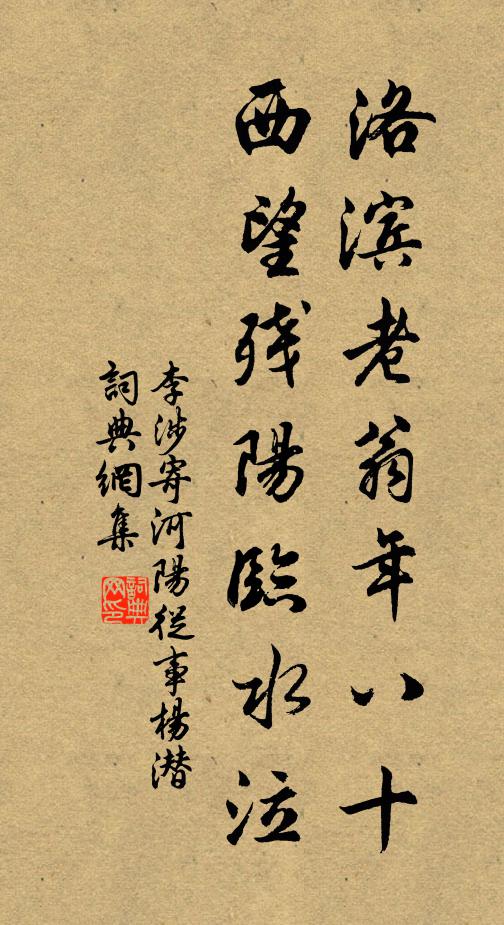 洛滨老翁年八十
西望残陽臨水泣
李涉寄河陽從事楊潜
詞典網集
詞典网印